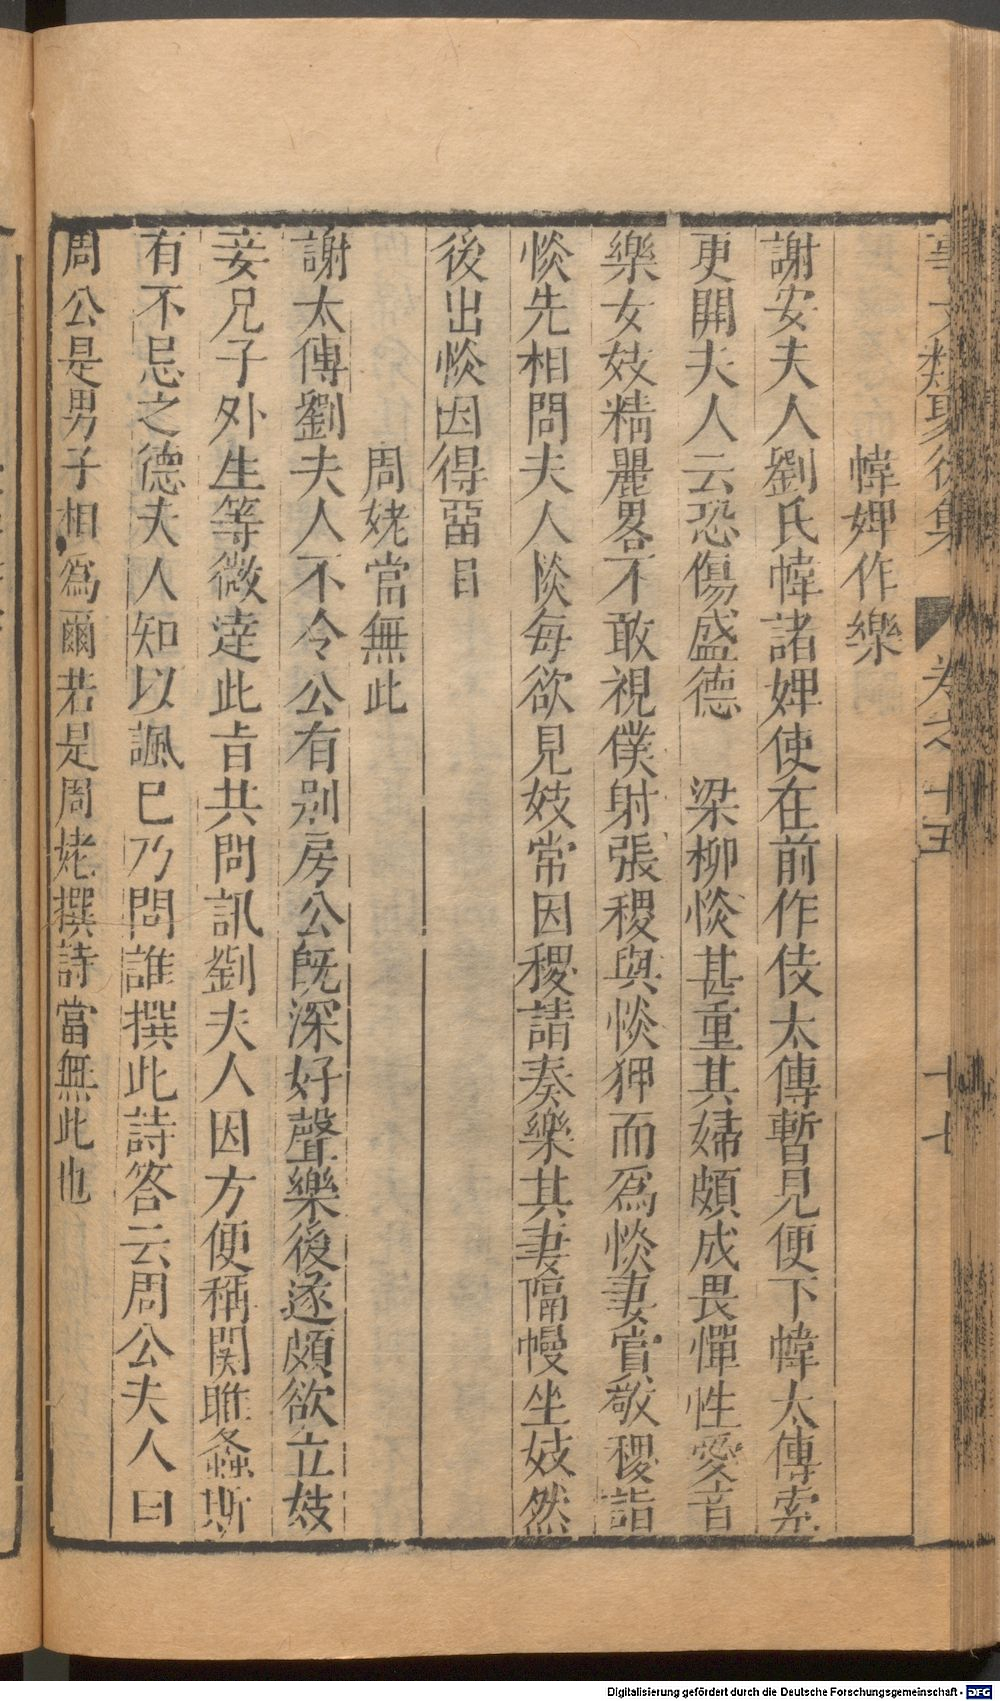 事文類聚後集 卷之十五 十七
幃婢作樂
謝安夫人劉氏幃諸婢使在前作伎太傅暫見便下幃太傅索
更開夫人云恐傷盛德 梁柳惔甚重其婦頗成畏憚性愛音
樂女妓精麗畧不敢視僕射張稷與惔狎而爲惔妻賞敬稷詣
惔先相問夫人惔每欲見妓常因稷請奏樂其妻隔幔坐妓然
後出惔因得畱目
周姥當無此
謝太傅劉夫人不令公有别房公旣深好聲樂後遂頗欲立妓
妾兄子外生等微達此㫖共問訊劉夫人因方便稱関雎螽斯
有不忌之德夫人知以諷巳乃問誰撰此詩答云周公夫人曰
周公是男子相爲爾若是周姥撰詩當無此也
Digitalisierung gefördert durch die Deutsche Forschungsgemeinschaft - DFG